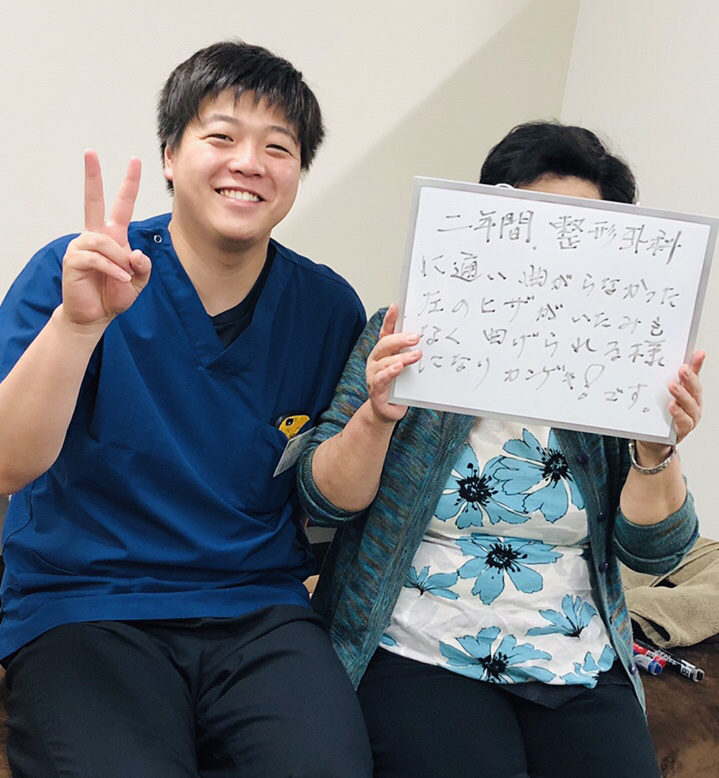 二年間、整形外科
に通い曲がらなかった
左のヒザがいたみも
なく曲げられる様
になりカンゲキ!です。